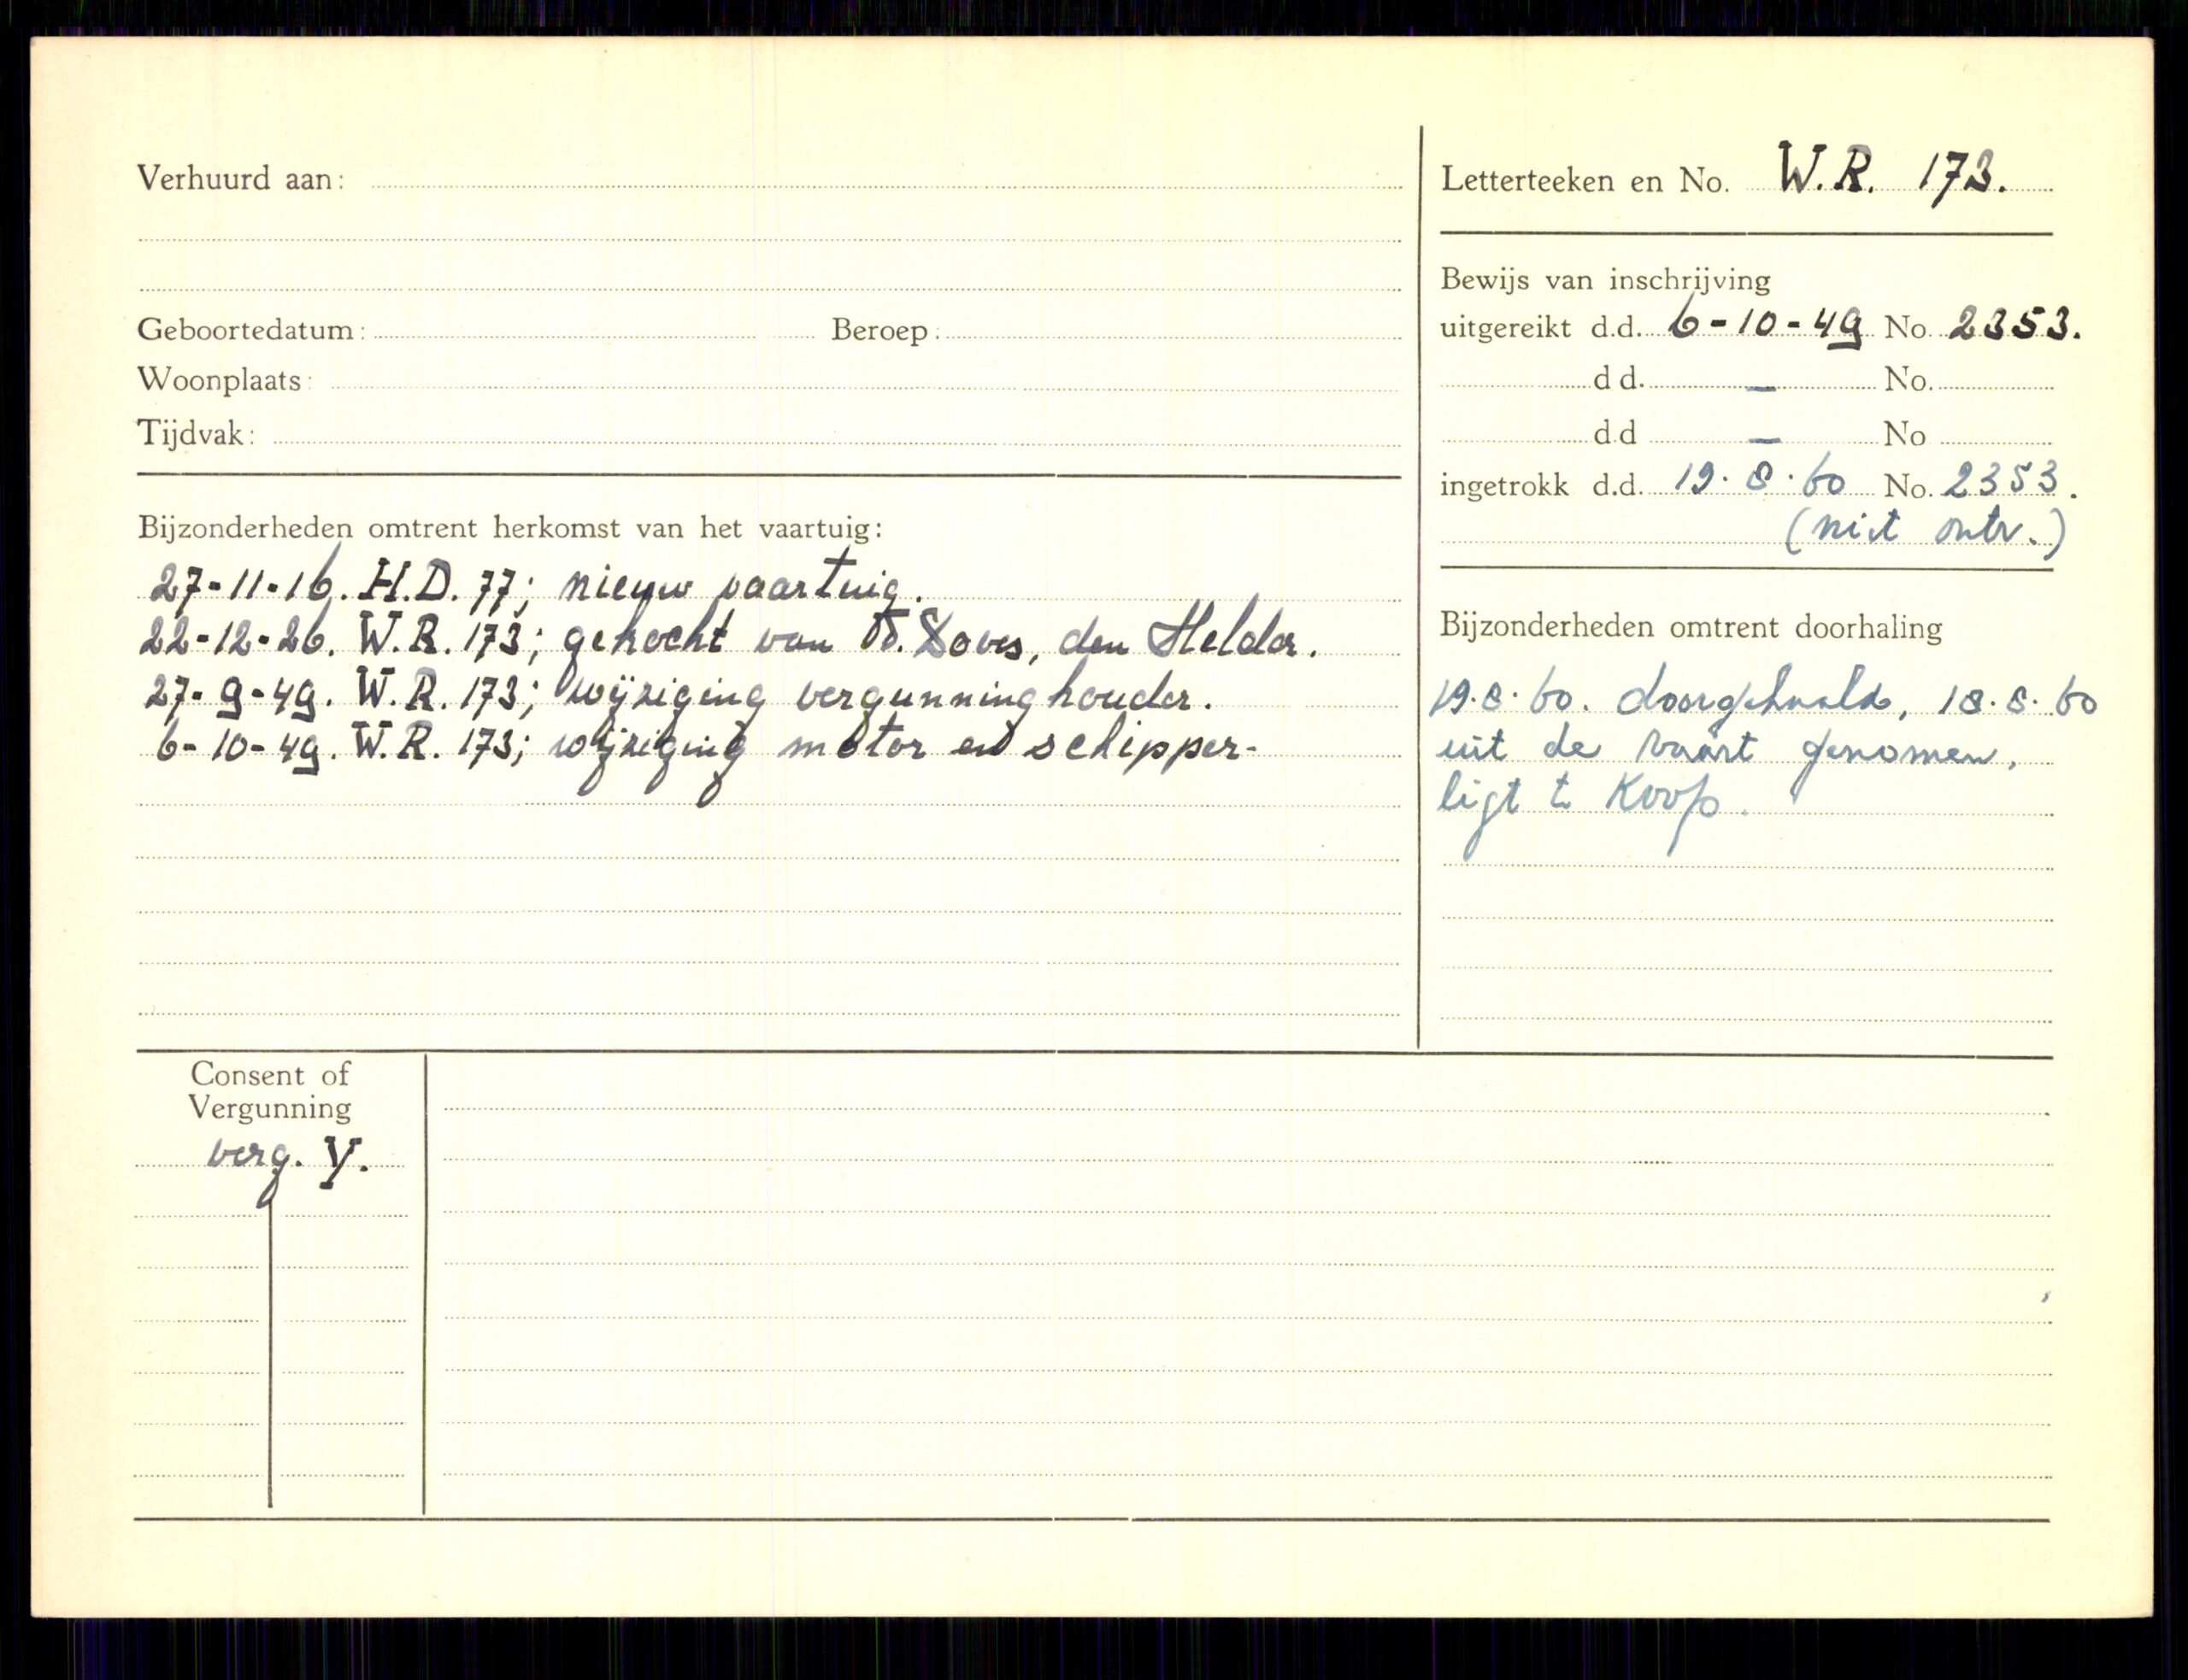 Verhuurd aan:
Geboortedatum: Beroep:
Woonplaats:
Tijdvak:
Bijzonderheden omtrent herkomst van het vaartuig:
27-11-16. H.D. 77; nieuw vaartuig.
22-12-26. W.R. 173; gekocht van den Helder.
27-9-49. W.R. 173; wijziging vergunninghouder.
6-10-49. W.R. 173; wijziging motor en schipper-
Letterteeken en No. W.R. 173.
Bewijs van inschrijving
uitgereikt d.d. 6-10-49 No. 2353.
d d. — No.
d.d — No
ingetrokk d.d. 19.8.60 No. 2353.
(niet ontv.)
Bijzonderheden omtrent doorhaling
19.8.60. doorgehaald, 18.8.60
uit de vaart genomen,
ligt te Koop.
Consent of
Vergunning
verg. V.